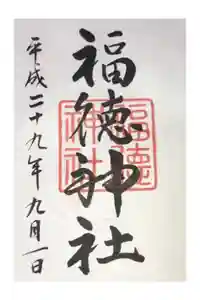 福徳神社
平成二十九年九月一日
福徳
神社